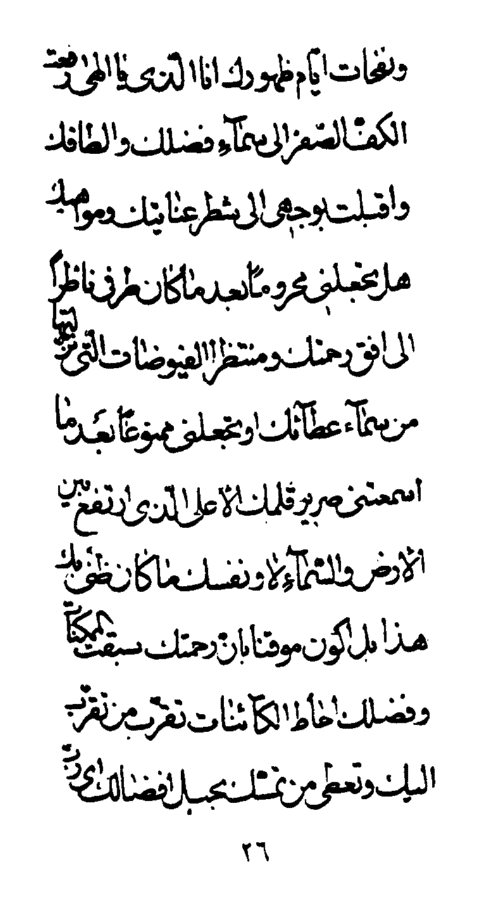 ونفحات ايّام ظهورك انا الّذى يا الهى رفعت
الكفّ الصّفر الى سمآء فضلك والطافك
واقبلت بوجهى الى شطر عنايتك ومواهبك
هل تجعلنى محروماً بعد ما كان طرفى ناظراً
الى افق رحمتك ومنتظرا الفيوضات الّتى نزّلتها
من سمآء عطآئك او تجعلنى ممنوعاً بعد ما
اسمعتنى صرير قلمك الاعلى الّذى ارتفع بين
الارض والسّمآء لا ونفسك ما كان ظنّى بك
هذا بل اكون موقنا بانّ رحمتك سبقت الممكنات
وفضلك احاط الكآئنات تقرّب من تقرّب
اليك وتعطى من تمسّك بحبل افضالك اى ربّ
٢٦